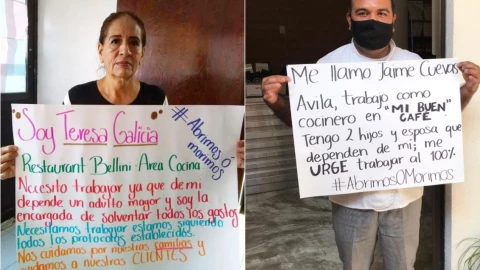 Soy Teresa Galicia
#Abrimos ó
morimos
Restaurant Bellini Area Cocina
Necesito trabajar ya que de mi
depende un adulto mayor y soy la
encargada de solventar todos los gastos
Necesitamos trabajar estamos siguiendo
todos los protocolos establecidos.
Nos cuidamos por nuestras familias y
cuidamos a nuestros CLIENTES
Me llamo Jaime Cuevas
Avila, trabajo como
cocinero en "MI BUEN
CAFÉ"
Tengo 2 hijos y esposa que
dependen de mi; me
URGE trabajar al 100%
#AbrimosOMorimos